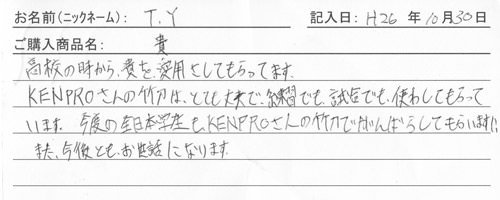 お名前(ニックネーム): T.Y 記入日: H26 年 10月30日
ご購入商品名: 貴
高校の時から、貴を愛用さしてもらってます。
KENPROさんの竹刀は、とても丈夫で、練習でも、試合でも、使わしてもらって
います。今度の全日本学生も、KENPROさんの竹刀でがんばらしてもらいます!!
また、今後とも、お世話になります。